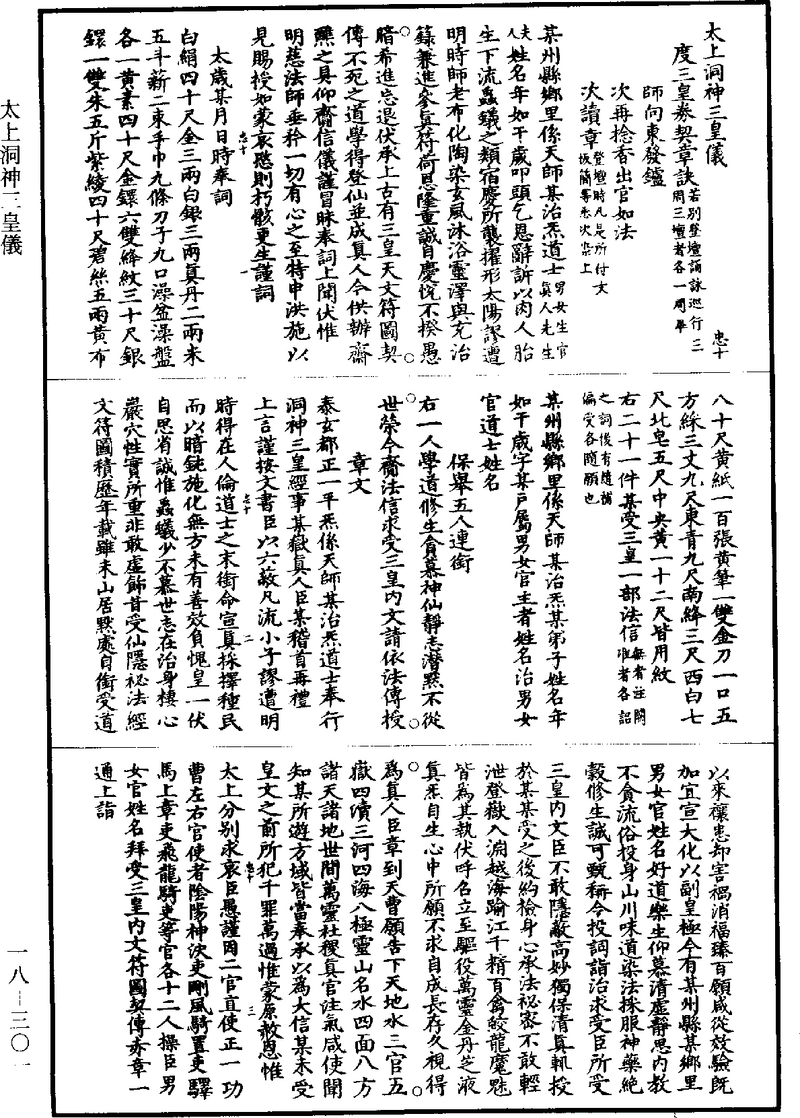 太上洞神三皇儀
度三皇券契章訣若別登壇誦詠巡行三周三壇者各一周畢
師向東發鑪
次再捻香出官如法
次讀章登壇時凡是所付文板簡等卷次案上
某州縣鄉里係天師某治炁道士男女生官真人先生
夫人姓名年如干歲叩頭乞恩辭訴以肉人胎
生下流蟲蟻之類宿慶所襲擢形太陽謬遭
明時師老布化陶染玄風沐浴靈澤與充治
籙兼進參真符荷恩隆重誠自慶悅不揆愚
暗希進忘退伏承上古有三皇天文符圖契
傳不死之道學得登仙並成真人今供辦齋
醮之具仰齎信儀謹冒昧奉詞上聞伏惟
明慈法師垂矜一切有心之至特申洪施以
見賜授如蒙哀愍則朽骸更生謹詞
太歲某月日時奉詞
白絹四十尺金三兩白銀三兩真丹二兩米
五斗薪二束手巾九條刀子九口澡盆澡盤
各一黃素四十尺金鐶六雙絳紋三十尺銀
鐶一雙朱五斤紫綾四十尺碧絲五兩黃布
八十尺黃紙一百張黃筆一雙金刀一口五
方綵三丈九尺東青九尺南絳三尺西白七
尺北皂五尺中央黃一十二尺皆用紋
右二十一件某受三皇一部法信無者註闕准者各詔
之詞後有隨補偏受各隨願也
某州縣鄉里係天師某治炁某弟子姓名年
如干歲字某戶屬男女官主者姓名治男女
官道士姓名
保舉五人連銜
右一人學道修生貪慕神仙靜志潛默不從
世榮今齎法信求受三皇內文請依法傳授
章文
泰玄都正一平炁係天師某治炁道士奉行
洞神三皇經事某嶽真人臣某稽首再禮
上言謹按文書臣以六蔽凡流小子謬遭明
時得在人倫道士之末銜命宣真採擇種民
而以暗鈍施化無方未有善效負愧皇一伏
自思省誠惟蟲蟻少不慕世志在治身棲心
巖穴性實所重非敢虛飾昔受仙隱祕法經
文符圖積歷年載雖未山居默處自銜受道
以來禳患却害禍消福臻百願咸從效驗既
加宜宣大化以副皇極今有某州縣某鄉里
男女官姓名好道樂生仰慕清虛靜思內教
不貪流俗投身山川味道染法採服神藥絕
穀修生誠可甄稱令投詞詣治求受臣所受
三皇內文臣不敢隱蔽高妙獨保清真軌投
於某某受之後約檢身心承法祕密不敢輕
泄登嶽入淵越海踰江千精百禽蛟龍魔魅
皆為其執伏呼名立至驅役萬靈金丹芝液
真炁自生心中所願不求自成長存久視得
為真人臣章到天曹願告下天地水三官五
嶽四瀆三河四海八極靈山名水四面八方
諸天諸地世間萬靈社稷真官注氣咸使聞
知某所遊方域皆當奉承以為大信某未受
皇文之前所犯千罪萬過惟蒙原赦恩惟
太上分別求哀臣愚謹因二官直使正一功
曹左右官使者陰陽神決吏剛風騎置吏驛
馬上章吏飛龍騎吏等官各十二人操臣男
女官姓名拜受三皇內文符圖契傳赤章一
通上詣
太上洞神三皇儀
一八—三〇一